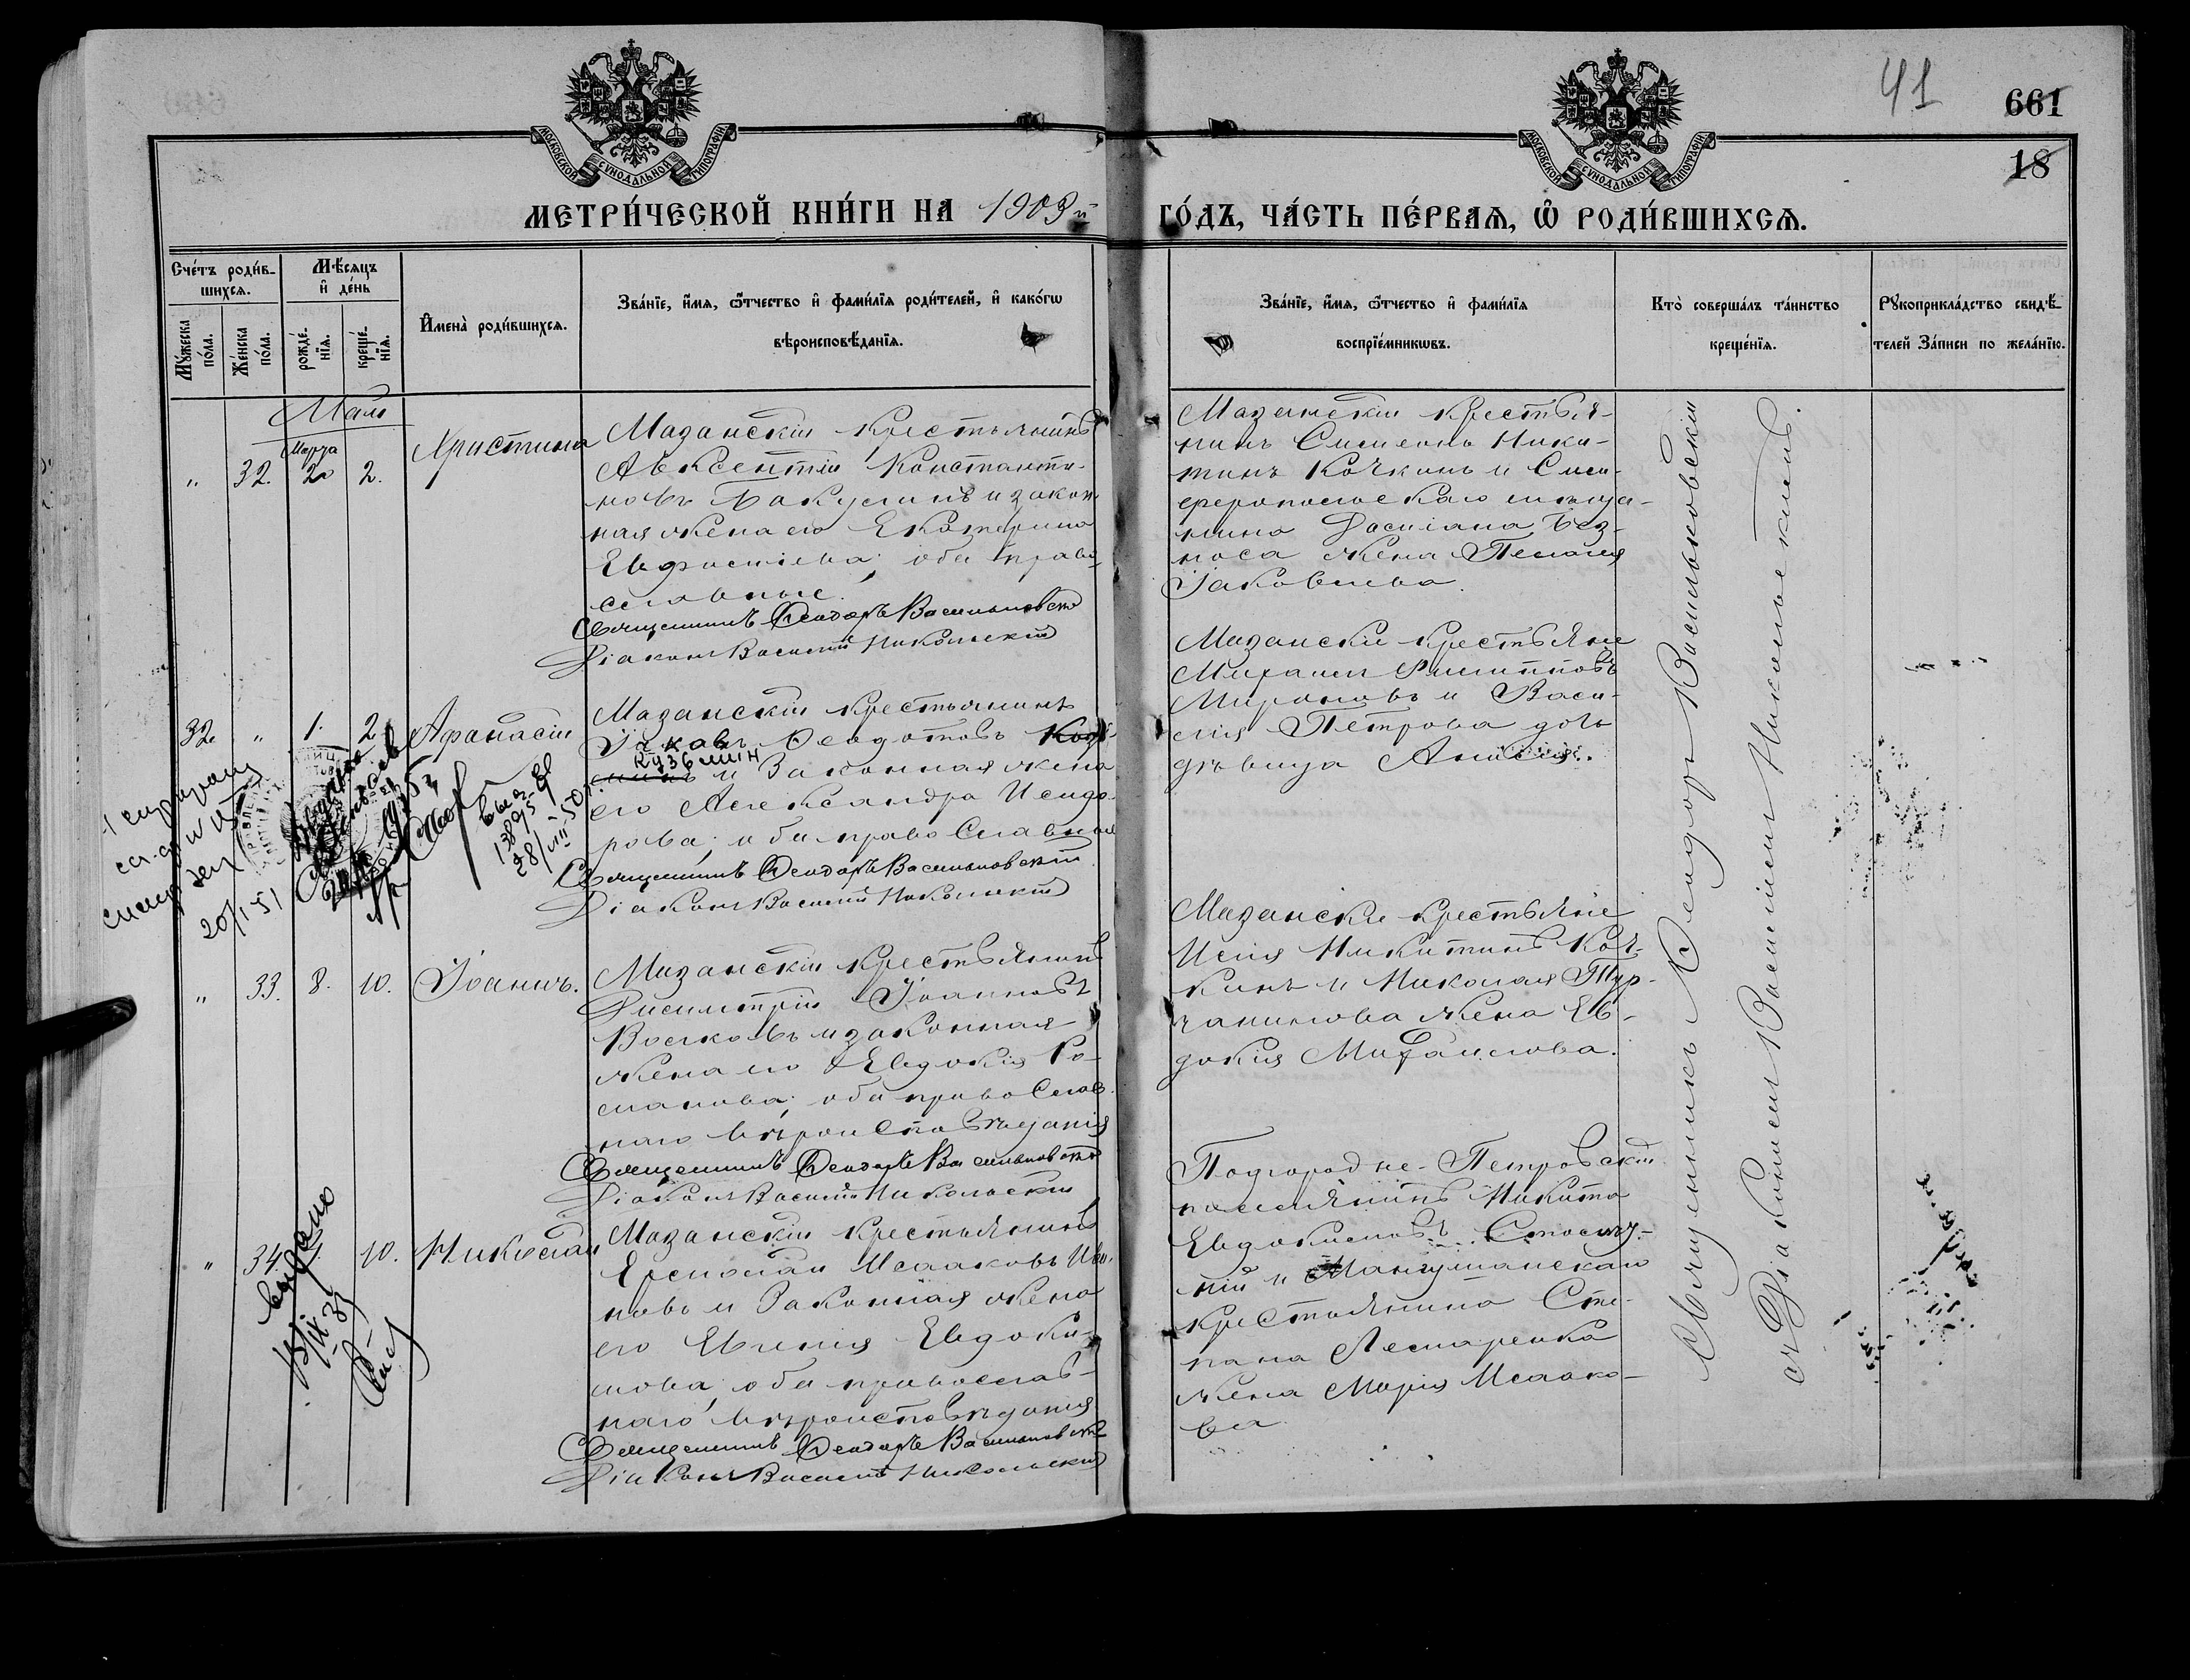 41
661
18
МОСКОВСКОЙ СѴНОДАЛЬНОЙ ТИПОГРАФІИ
МОСКОВСКОЙ СѴНОДАЛЬНОЙ ТИПОГРАФІИ
МЕТРИ́ЧЕСКОЙ КНИ́ГИ НА 1903й ГО́ДЪ, ЧА́СТЬ ПЕ́РВАѦ, Ѡ҆ РОДИ́ВШИХСѦ.
Сче́тъ роди́в-
шихсѧ.
Мꙋ́жеска
по́ла.
Же́нска
по́ла.
Мѣ́сѧцъ
и҆ де́нь
рожде́-
нїѧ.
креще́-
нїѧ.
И҆мена̀ роди́вшихсѧ.
Зва́нїе, и҆́мѧ, ѻ҆́тчество и҆ фами́лїѧ роди́телей, и҆ како́гѡ
вѣроисповѣ́данїѧ.
Зва́нїе, и҆́мѧ, ѻ҆́тчество и҆ фами́лїѧ
воспрїе́мникѡвъ.
Кто̀ соверша́лъ та́инство
креще́нїѧ.
Рꙋкоприкла́дство свидѣ́-
телей За́писи по жела́нїю.
Маій
Марта
" 32. 20 2. Христина
Мазанскій крестьянинъ
Авксентій Константи-
новъ Бакулинъ и закон-
ная жена его Екатерина
Евфиміева; оба право-
славные.
Священникъ Ѳеодоръ Васильковскій
Діаконъ Василій Никольскій
Мазанскій крестья-
нинъ Симеонъ Ники-
тинъ Кочкинъ и Сим-
феропольскаго мѣща-
нина Даміана Без-
носа жена Пелагія
Іаковлева.
32. " 1. 2. Аѳанасій
Мазанскій крестьянинъ
Іаковъ Ѳеодотовъ
Кузьмин
и Законная жена
его Александра Исидо-
рова; оба православные
Священникъ Ѳеодоръ Васильковскій
Діаконъ Василій Никольскій
Мазанскіе крестьяне
Михаилъ Филипповъ
Мироновъ и Васи-
лія Петрова дочь
дѣвица Анисія.
20/I-51
выд.
13895
28/VIII-50
" 33. 8. 10. Іоаннъ.
Мазанскій крестьянинъ
Димитрій Іоанновъ
Волковъ и законная
жена его Евдокія Ро-
манова; оба православ-
наго вѣроисповѣданія
Священникъ Ѳеодоръ Васильковскій
Діаконъ Василій Никольскій
Мазанскіе крестьяне
Илія Никитинъ Коч-
кинъ и Николая Тур-
чанинова жена Ев-
докія Михаилова.
" 34. 10. Николай
Мазанскій крестьянинъ
Ермолай Исааковъ Ива-
новъ и Законная жена
его Евгенія Евдоки-
мова; оба православ-
наго вѣроисповѣданія
Священникъ Ѳеодоръ Васильковскій
Діаконъ Василій Никольскій
Подгородне-Петровскій
поселянинъ Никита
Евдокимовъ
и Мангушскаго
крестьянина Сте-
пана Лемаренка
жена Марія Исаако-
ва
выдано
Священникъ Ѳеодоръ Васильковскій
съ Діакономъ Василіемъ Никольскимъ.